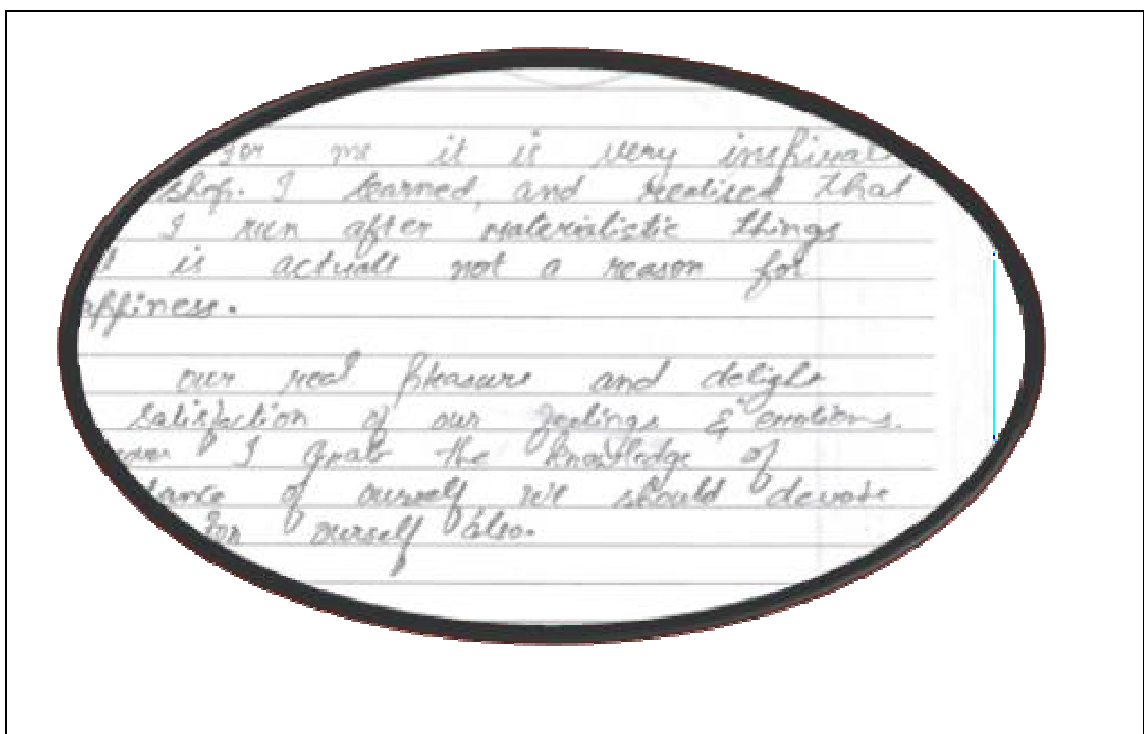 For me it is very inspirat
shop. I learned, and realised that
I run after materialistic things
is actuall not a reason for
appiness.
our real pleasure and delight
satisfaction of our feelings & emotions.
I Grab the knowledge of
tance of ourself we should devote
for ourself also.